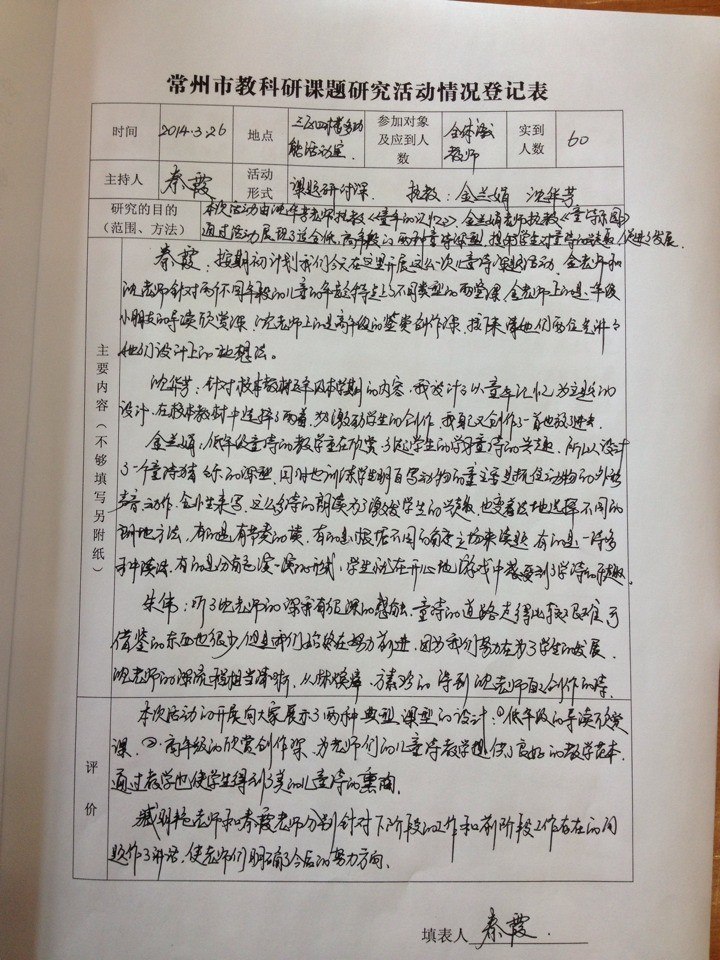 常州市教科研课题研究活动情况登记表
时间 2014.3.26 地点 三区四楼多功能活动室 参加对象及应到人数 全体语教师 实到人数 60
主持人 秦霞 活动形式 课题研讨课 执教：金兰娟 沈华芳
研究的目的（范围、方法） 本次活动由沈华芳老师执教《童年的记忆》金兰娟老师执教《童诗乐园》
通过活动展现了适合低、高年级的两种童诗课型，提升学生对童诗的兴趣，促进了发展.
主要内容（不够填写另附纸）
秦霞：按期初计划我们今天在这里开展这么一次儿童诗课题活动，金老师和
沈老师针对两个不同年级的儿童的年龄特点上了不同类型的两堂课，金老师上的是一年级
小朋友的导读欣赏课，沈老师上的是高年级的鉴赏创作课，接下来请他们两位先讲
他们设计上的一些想法。
沈华芳：针对校本教材五年级本学期的内容，我设计了以童年记忆为主题的
设计，在校本教材中选择了两首，为激励学生的创作，我自己又创作了一首也放了进去.
金兰娟：低年级童诗的教学重在欣赏，引起学生的学习童诗的兴趣，所以设计
了一个童诗有乐的课型，同时也训练学生明白写动物的童主要是抓住动物的外形
声音、动作、会外生来写，这么多诗的朗读为了激发学生的兴趣，也变着法地选择不同的
朗读方法，有的是有节奏的读，有的是根据不同的角度立场来读题，有的是一诗多
种读法，有的是分角色读一演的形式，学生就在开心地游戏中感受到了学诗的乐趣.
朱伟：听了沈老师的课我有很深的感触，童诗的道路走得比较艰难，可
借鉴的东西也很少，但是我们始终在努力前进，因为我们努力在为了学生的发展.
沈老师的课流程相当清晰，从林焕彰、方素珍的诗到沈老师自己创作的诗.
评价
本次活动的开展向大家展示了两种典型课型的设计：①低年级的导读欣赏
课. ②高年级的欣赏创作课，为老师们的儿童诗教学提供了良好的教学范本.
通过教学也使学生得到了美的儿童诗的熏陶.
臧明艳老师和秦霞老师分别针对下阶段的工作和前阶段工作存在的问
题作了讲话，使老师们明确了今后的努力方向.
填表人 秦霞.